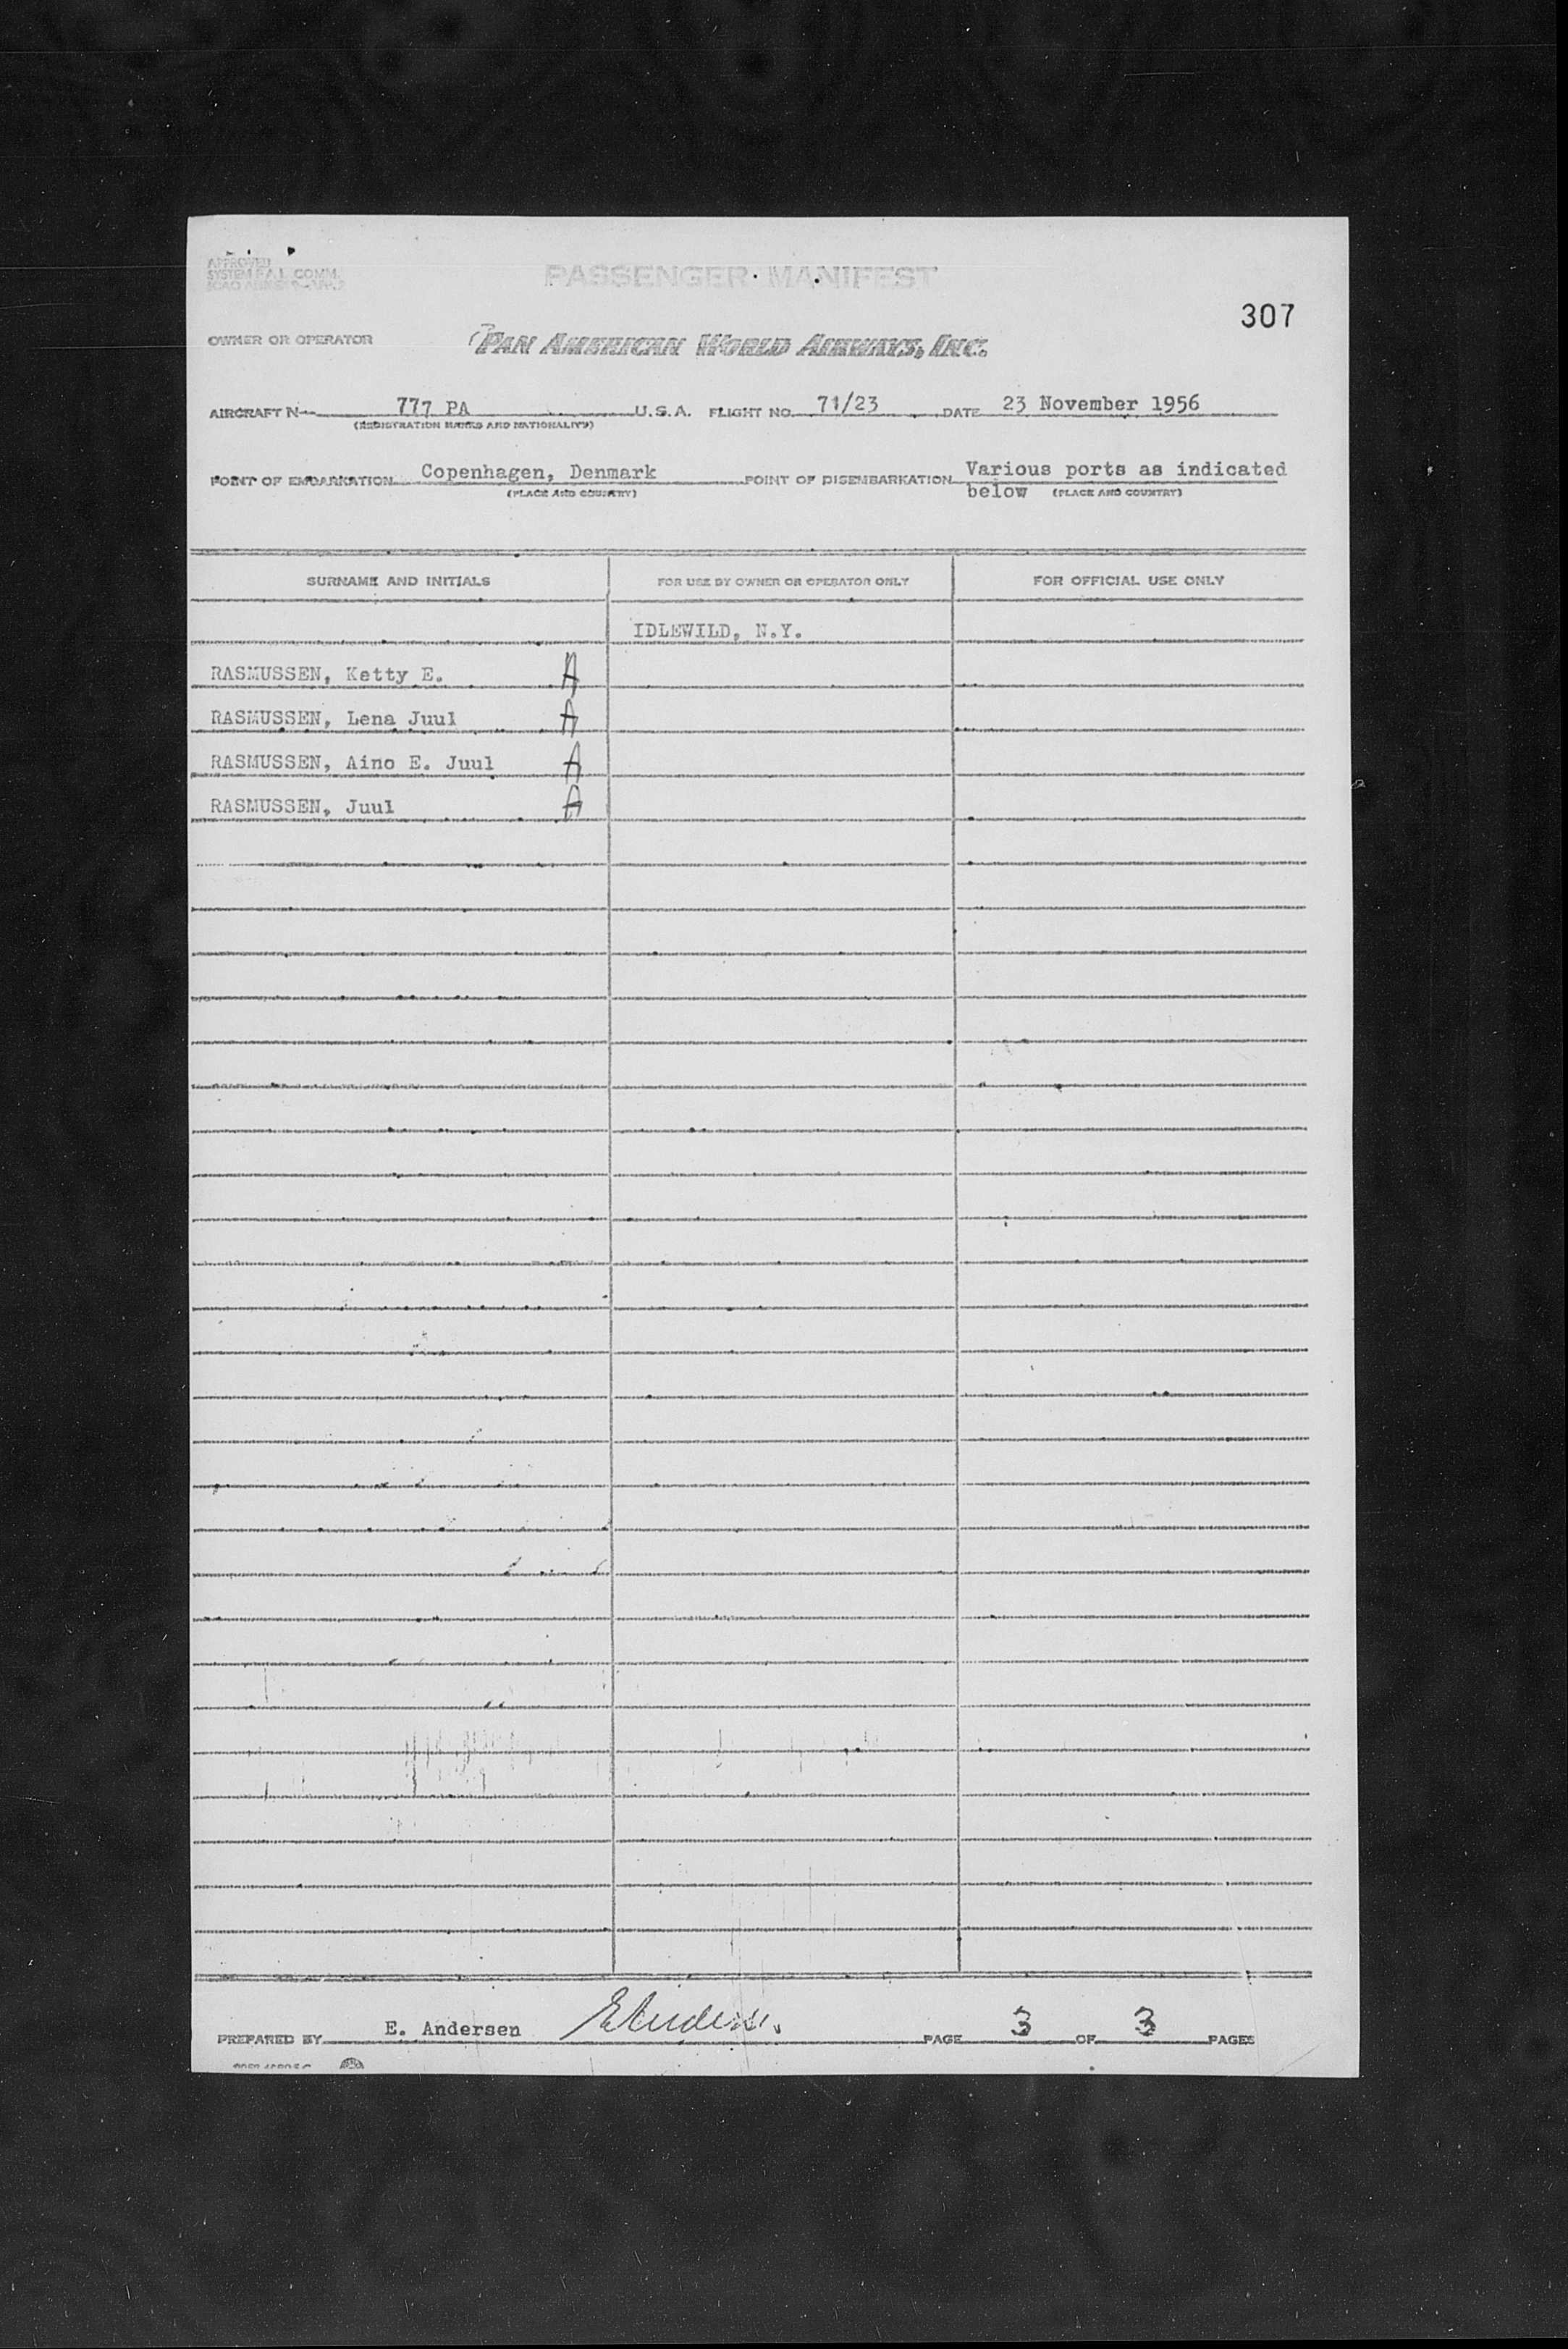 APPROVED
SYSTEM F.A.L. COMM.
PASSENGER MANIFEST
307
OWNER OR OPERATOR PAN AMERICAN WORLD AIRWAYS, INC.
AIRCRAFT N 777 PA U.S.A. FLIGHT NO. 71/23 DATE 23 November 1956
(REGISTRATION MARKS AND NATIONALITY)
POINT OF EMBARKATION Copenhagen, Denmark POINT OF DISEMBARKATION Various ports as indicated
(PLACE AND COUNTRY) below (PLACE AND COUNTRY)
SURNAME AND INITIALS FOR USE BY OWNER OR OPERATOR ONLY FOR OFFICIAL USE ONLY
IDLEWILD, N.Y.
RASMUSSEN, Ketty E. A
RASMUSSEN, Lena Juul A
RASMUSSEN, Aino E. Juul A
RASMUSSEN, Juul A
PREPARED BY E. Andersen PAGE 3 OF 3 PAGES